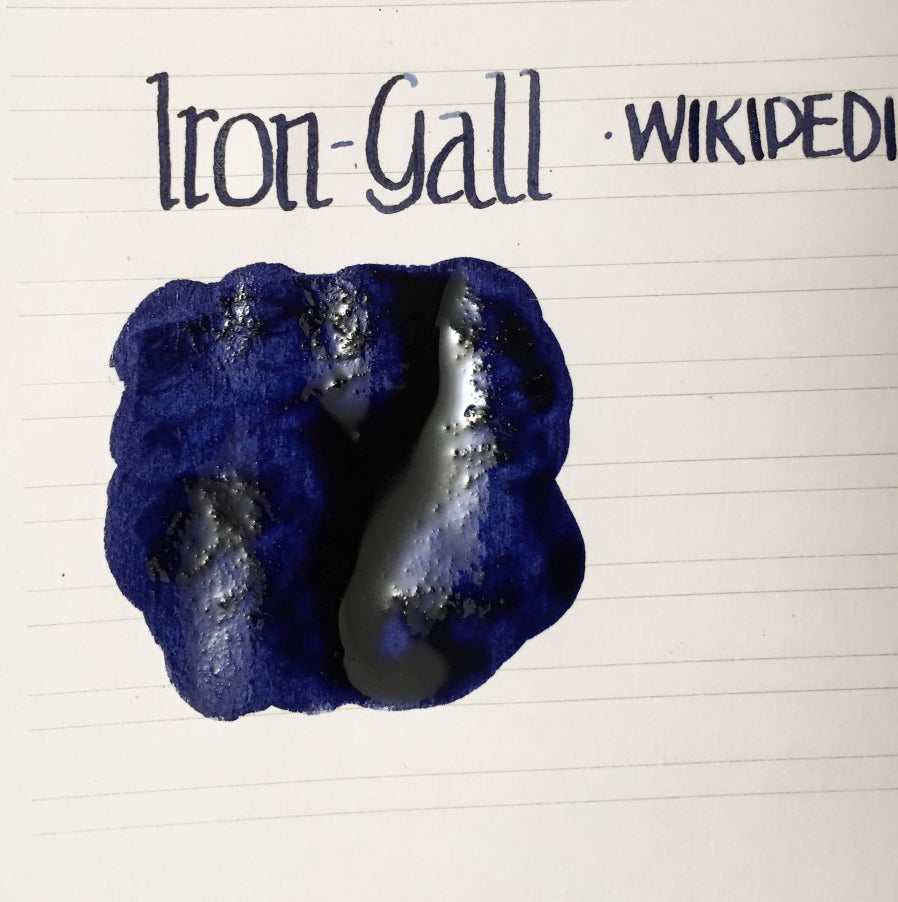 Iron-Gall · WIKIPEDI